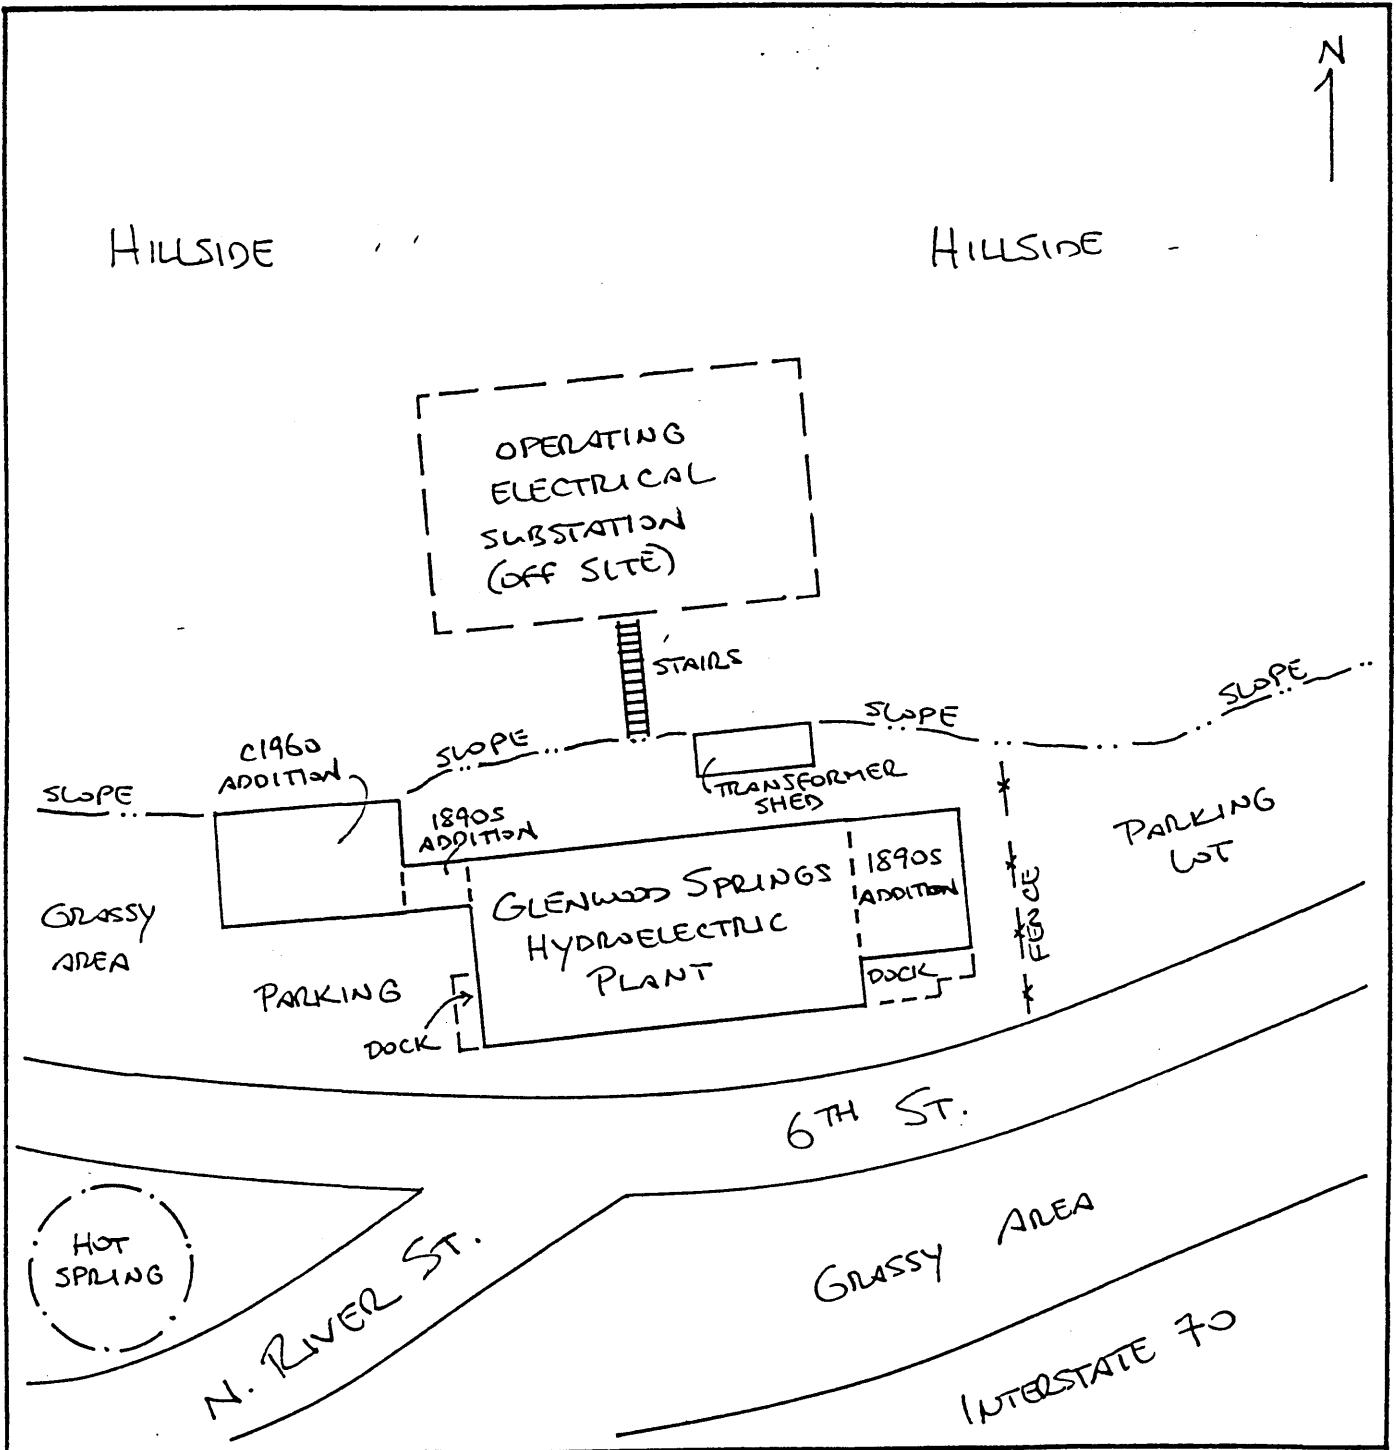 N
HILLSIDE
HILLSIDE
OPERATING
ELECTRICAL
SUBSTATION
(OFF SITE)
STAIRS
SLOPE
SLOPE
SLOPE
SLOPE
C1960
ADDITION
1890S
ADDITION
TRANSFORMER
SHED
PARKING
LOT
GRASSY
AREA
GLENWOOD SPRINGS
HYDROELECTRIC
PLANT
1890S
ADDITION
FENCE
PARKING
DOCK
DOCK
6TH ST.
HOT
SPRING
N. RIVER ST.
GRASSY AREA
INTERSTATE 70